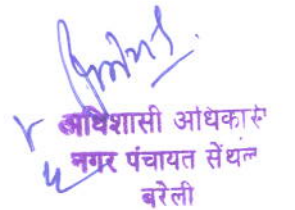 अधिशासी अधिकारी
नगर पंचायत सेंथल
बरेली